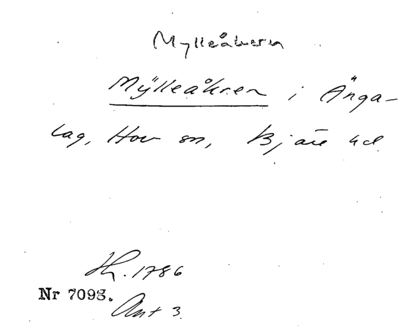 Mylleåkern
Mÿlleåkren i Änga-
lag, Hov sn, Bjäre hd
Sk. 1786
Nr 7093.
Ant 3.